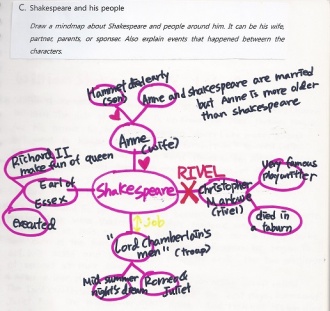 C. Shakespeare and his people
Draw a mindmap about Shakespeare and people around him. It can be his wife,
partner, parents, or sponser. Also explain events that happened between the
characters.
Hammet died early
(son)
Anne and shakespeare are married
but Anne is more older
than shakespeare
Anne
(wife)
Richard II
make fun of queen
Earl of
Essex
executed
Shakespeare
RIVEL
Christopher
Marlowe
(rivel)
very famous
playwriter
died in
a taburn
Job
"Lord Chamberlain's
men" (troup)
Mid summer
night's dream
Romeo &
Juliet